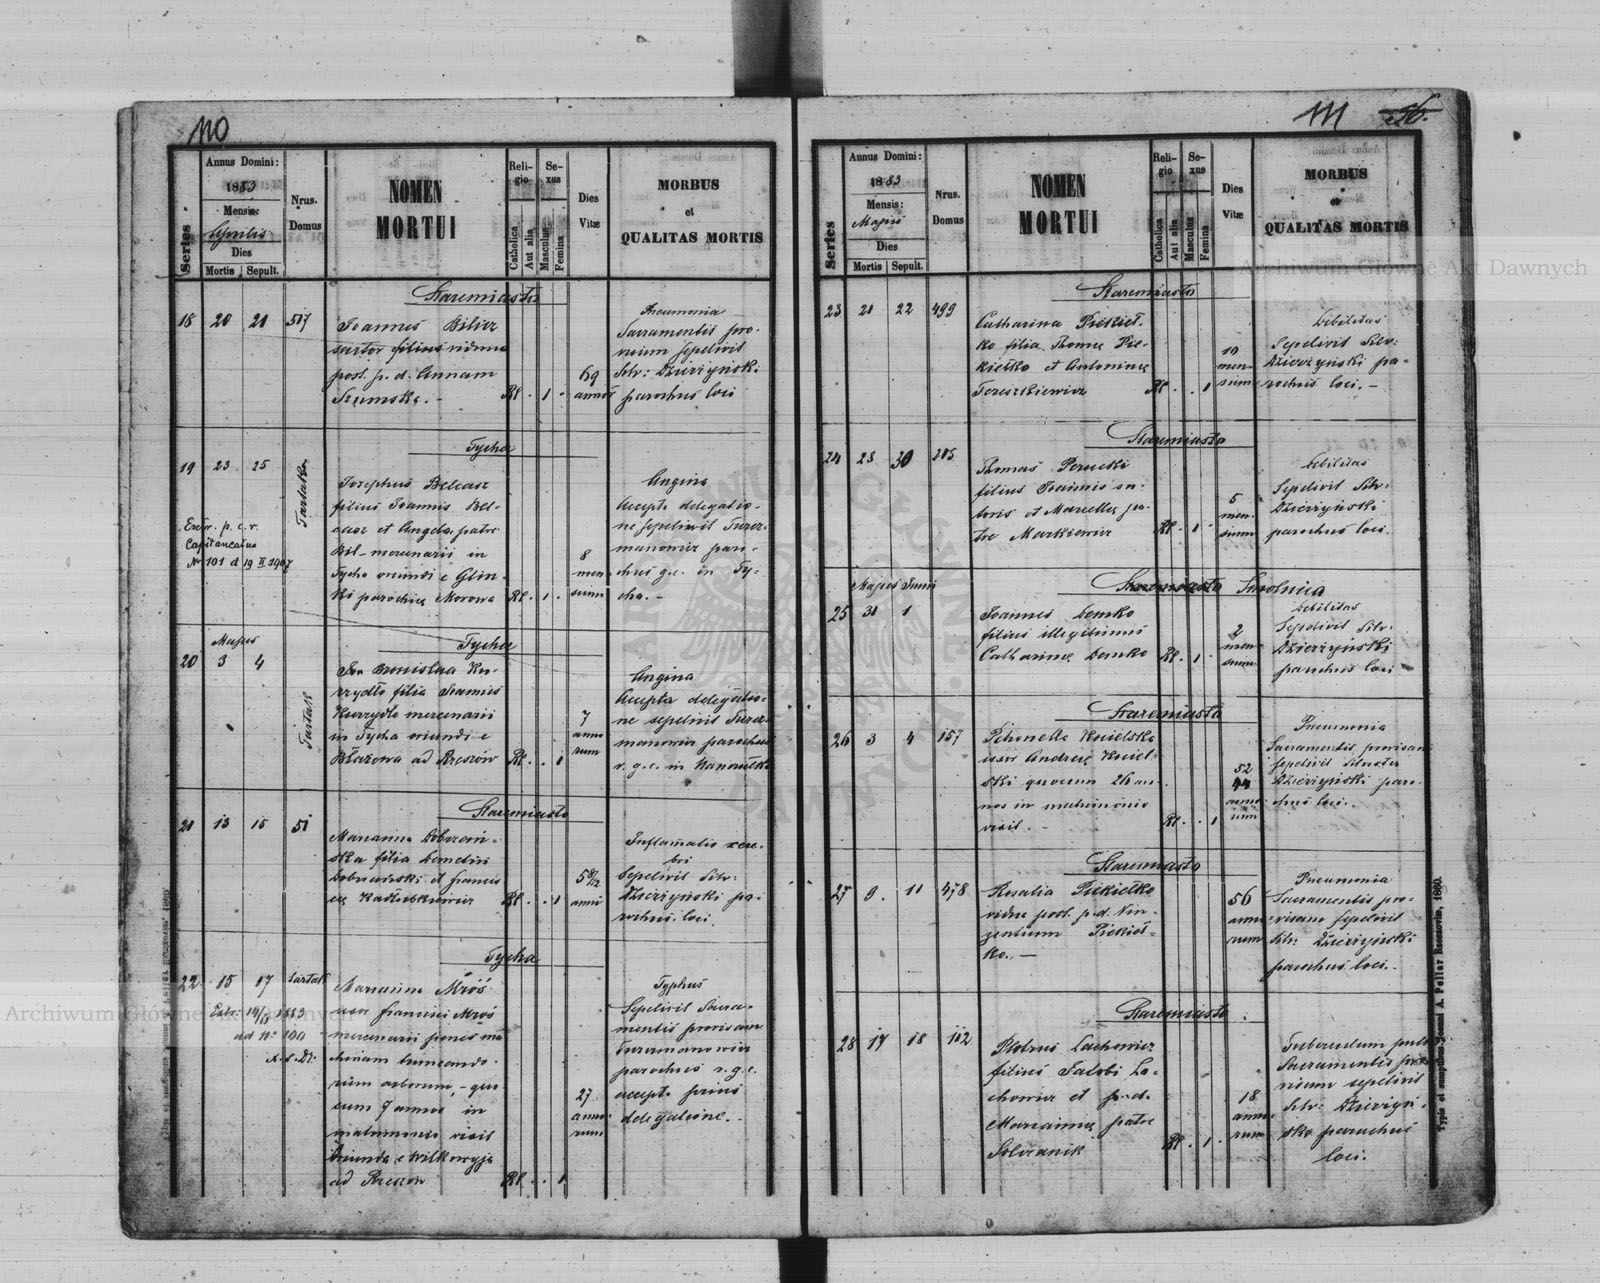 110
Annus Domini:
1883
Mensis:
Aprilis
Dies
Mortis Sepult.
Series
Nrus. Domus
NOMEN
MORTUI
Religio
Catholica
Aut alia
Sexus
Masculus
Femina
Dies
Vitæ
MORBUS
et
QUALITAS MORTIS
Staremiasto
18 20 21 517
Joannes Bilicz
sartor filius viduus
post. p. d. Annam
Szumską. -
Rl. 1
69
annor
Pneumonia
Sacramentis pro-
visum sepelivit
Silv: Dzierżyński
parochus loci
Tycha
19 23 25 Tartak
Extr. p. c. r.
Capitaneatus
Nr 101 d 19 II 1907
Josephus Belcarz
filius Joannis Bel-
carz et Angela patre
Bil- mercenarii in
Tycha oriundi e Glin-
ki parochiæ Morowa
Rl. 1
8
men
sium
Angina
Accepta delegatio-
ne sepelivit Turze-
manowicz paro-
chus g.c. in Ty-
cha. -
Majus
Tycha
20 3 4 Tartak
Bronislaa Ku-
rzydło filia Joannis
Kurzydło mercenarii
in Tycha oriundi e
Błażowa ad Rzeszów
Rl. 1
7
anno
rum
Angina
Accepta delegatio-
ne sepelivit Turze-
manowicz parochus
r. g. c. in
Staremiasto
21 13 15 51
Marianna Dobrzań-
ska filia
Dobrzański et Francis
cæ
Rl. 1
5 8/12
anni
Inflamatio cere-
bri
Sepelivit Silv:
Dzierżyński pa-
rochus loci
Tycha
22 15 17 Tartak
Extr: 1883
ad Nr 100
Marianna Mroś
uxor Francisci Mroś
mercenarii penes ma
chinam
rum arborum, - quo
cum 7 annos in
matrimonio vixit
Oriunda e Wilkowyja
ad Rzeszow
Rl. 1
27
anno
rum
Typhus
Sepelivit Sacra-
mentis provisam
Turzemanowicz
parochus r. g. c.
accepta prius
delegatione. -
111 56.
Annus Domini:
1883
Mensis:
Majus
Dies
Mortis Sepult.
Series
Nrus. Domus
NOMEN
MORTUI
Religio
Catholica
Aut alia
Sexus
Masculus
Femina
Dies
Vitæ
MORBUS
et
QUALITAS MORTIS
Staremiasto
23 21 22 499
Catharina Piekieł-
ko filia Thomæ Pie-
kiełko et Antoninæ
Tereszkiewicz
Rl. 1
10
men-
sium
Debilitas
Sepelivit Silv:
Dzierżyński pa-
rochus loci. -
Staremiasto
24 28 30 205
Thomas Perucki
filius Joannis su-
toris et Marcellæ pa-
tre Markiewicz
Rl. 1
5
men-
sium
Debilitas
Sepelivit Silv:
Dzierżyński
parochus loci.
Majus Juni
Staremiasto Smolnica
25 31 1
Joannes Demko
filius illegitimus
Catharinæ Demko
Rl. 1
2
men
sium
Debilitas
Sepelivit Silv.
Dzierżyński
parochus loci
Staremiasto
26 3 4 157
Petronella Kosielska
uxor Andreæ Kosiel-
ski quocum 26 an-
nos in matrimonio
vixit. -
Rl. 1
52
44
anno
rum
Pneumonia
Sacramentis provisam
sepelivit Silvester
Dzierżyński paro-
chus loci.
Staremiasto
27 9 11 478
Rosalia Piekiełko
vidua post. p. d. Vin-
zentium Piekieł-
ko. -
56
anno
rum
Pneumonia
Sacramentis pro-
visam sepelivit
Silv: Dzierżyński
parochus loci.
Staremiasto
28 17 18 112
Petrus Lachowicz
filius Jacobi La-
chowicz et p. d.
Mariannæ patre
Solczanik
Rl. 1
18
anno-
rum
Tuberculum pulm
Sacramentis pro
visum sepelivit
Silv: Dzierżyń-
ski parochus
loci.
Typis et sumptibus Joanni A. Pellar Rzeszoviæ, 1860.
Archiwum Główne Akt Dawnych
Archiwum Główne Akt Dawnych